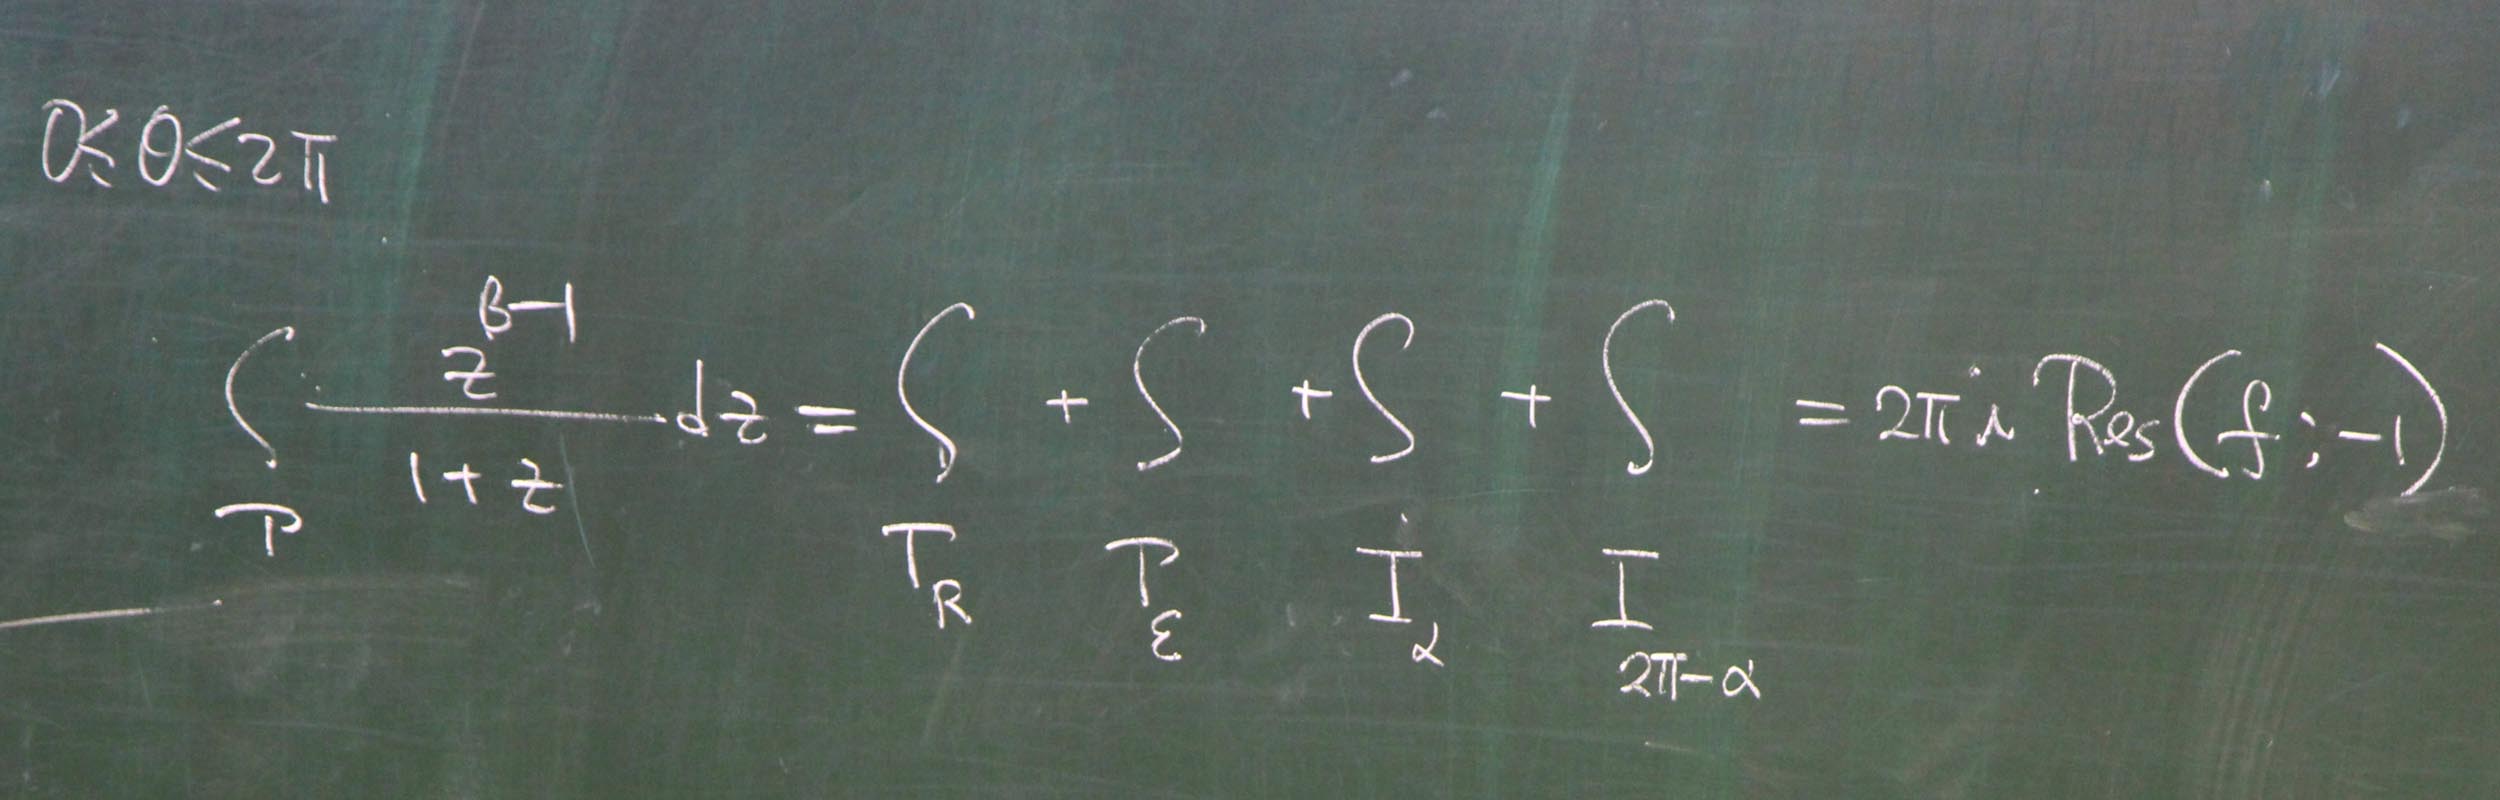 0 ≤ θ ≤ 2π
∫_Γ z^{β-1} / (1+z) dz = ∫_{Γ_R} + ∫_{Γ_ε} + ∫_{I_α} + ∫_{I_{2π-α}} = 2πi Res(f; -1)